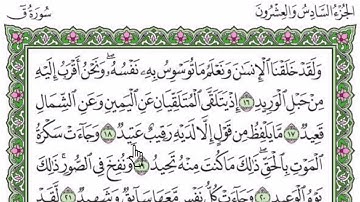 الجزء السادس والعشرون
سورة ق
وَلَقَدْ خَلَقْنَا الْإِنسَانَ وَنَعْلَمُ مَا تُوَسْوِسُ بِهِ نَفْسُهُ وَنَحْنُ أَقْرَبُ إِلَيْهِ
مِنْ حَبْلِ الْوَرِيدِ ١٦ إِذْ يَتَلَقَّى الْمُتَلَقِّيَانِ عَنِ الْيَمِينِ وَعَنِ الشِّمَالِ
قَعِيدٌ ١٧ مَا يَلْفِظُ مِن قَوْلٍ إِلَّا لَدَيْهِ رَقِيبٌ عَتِيدٌ ١٨ وَجَاءَتْ سَكْرَةُ
الْمَوْتِ بِالْحَقِّ ذَٰلِكَ مَا كُنتَ مِنْهُ تَحِيدُ ١٩ وَنُفِخَ فِي الصُّورِ ذَٰلِكَ
يَوْمُ الْوَعِيدِ ٢٠ وَجَاءَتْ كُلُّ نَفْسٍ مَّعَهَا سَائِقٌ وَشَهِيدٌ ٢١ لَّقَدْ